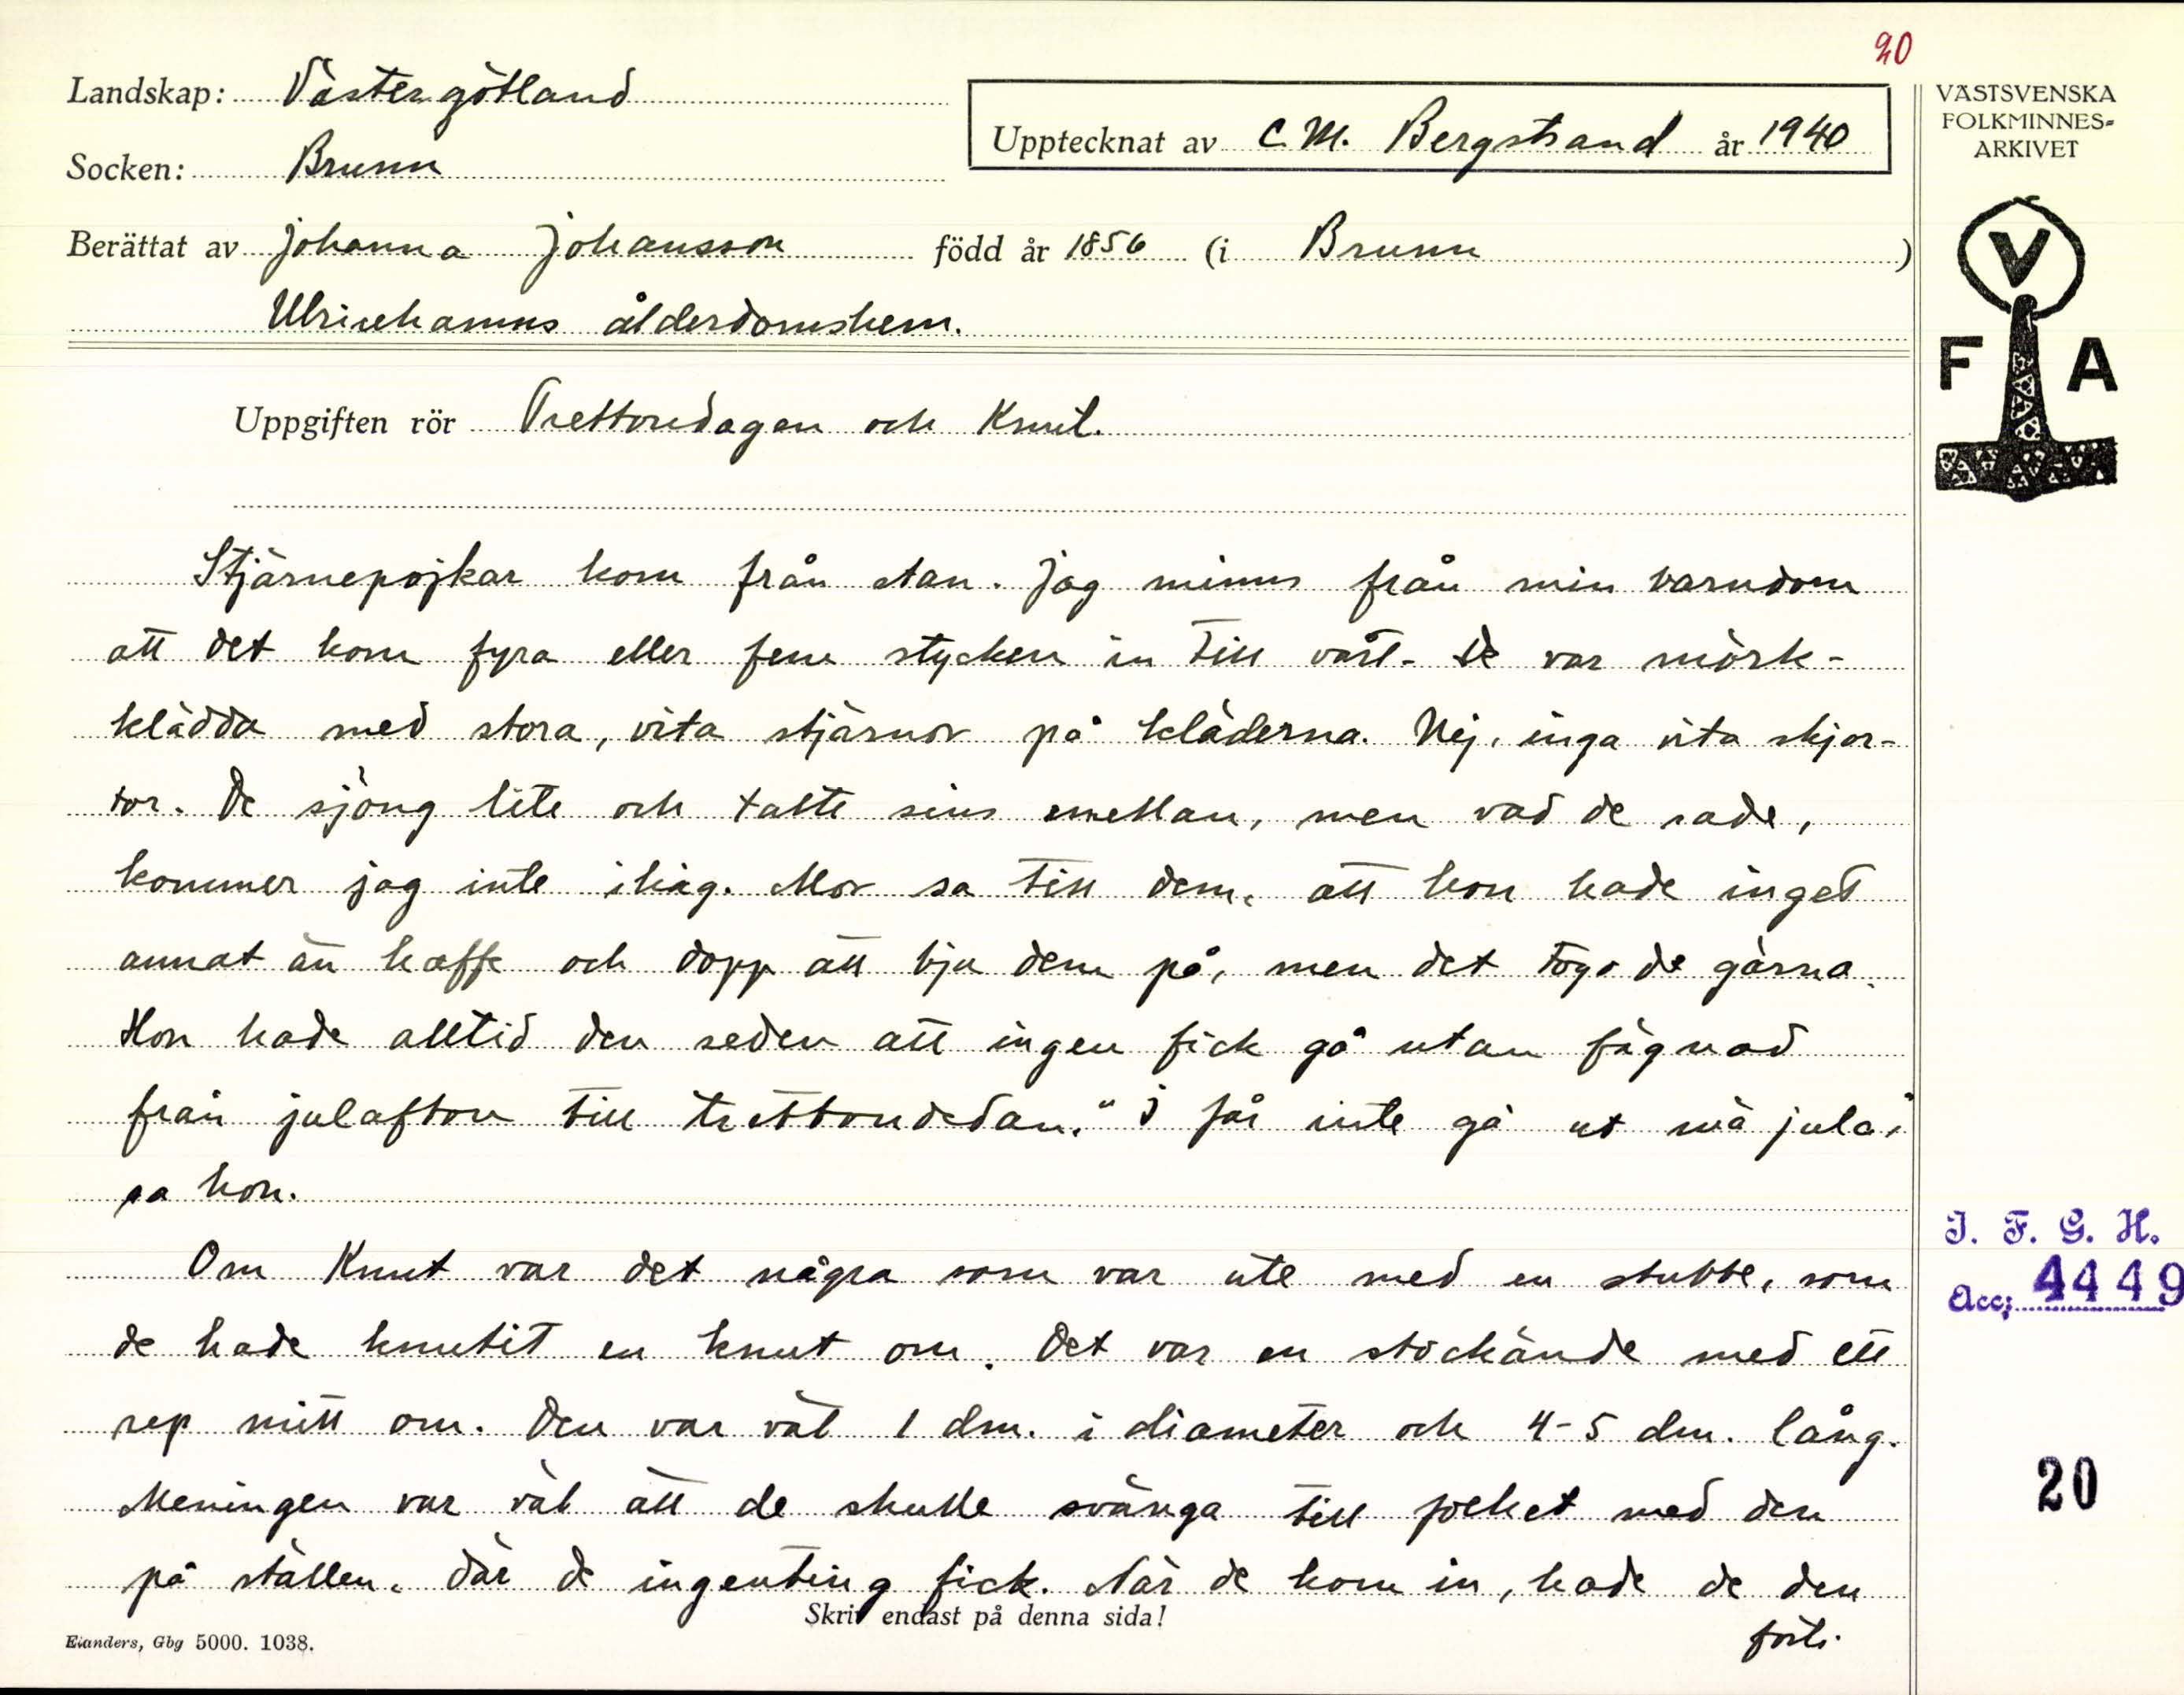 20
Landskap: Västergötland
Upptecknat av C.M. Bergstrand år 1940
VÄSTSVENSKA
FOLKMINNES-
ARKIVET
Socken: Brunn
Berättat av Johanna Johansson född år 1856 (i Brunn)
Ulricehamns ålderdomshem.
V
F A
Uppgiften rör Trettondagen och Knut.
Stjärnepojkar kom från stan. Jag minns från min barndom
att det kom fyra eller fem stycken in till vårt. De var mörk-
klädda med stora, vita stjärnor på kläderna. Nej, inga vita skjor-
tor. De sjöng lite och talte sins emellan, men vad de sade,
kommer jag inte ihåg. Mor sa till dem, att hon hade inget
annat än kaffe och dopp att bju dem på, men det togo de gärna.
Hon hade alltid den seden att ingen fick gå utan fägnad
från julafton till trettondedan. "I får inte gå ut mä jula,"
sa hon.
Om Knut var det några som var ute med en stubbe, som
de hade knutit en knut om. Det var en stockände med ett
rep mitt om. Den var väl 1 dm. i diameter och 4-5 dm. lång.
Meningen var väl att de skulle svänga till folket med den
på ställen, där de ingenting fick. När de kom in, hade de den
forts.
J. F. G. H.
Acc: 4449
20
Skriv endast på denna sida!
Elanders, Gbg 5000. 1038.